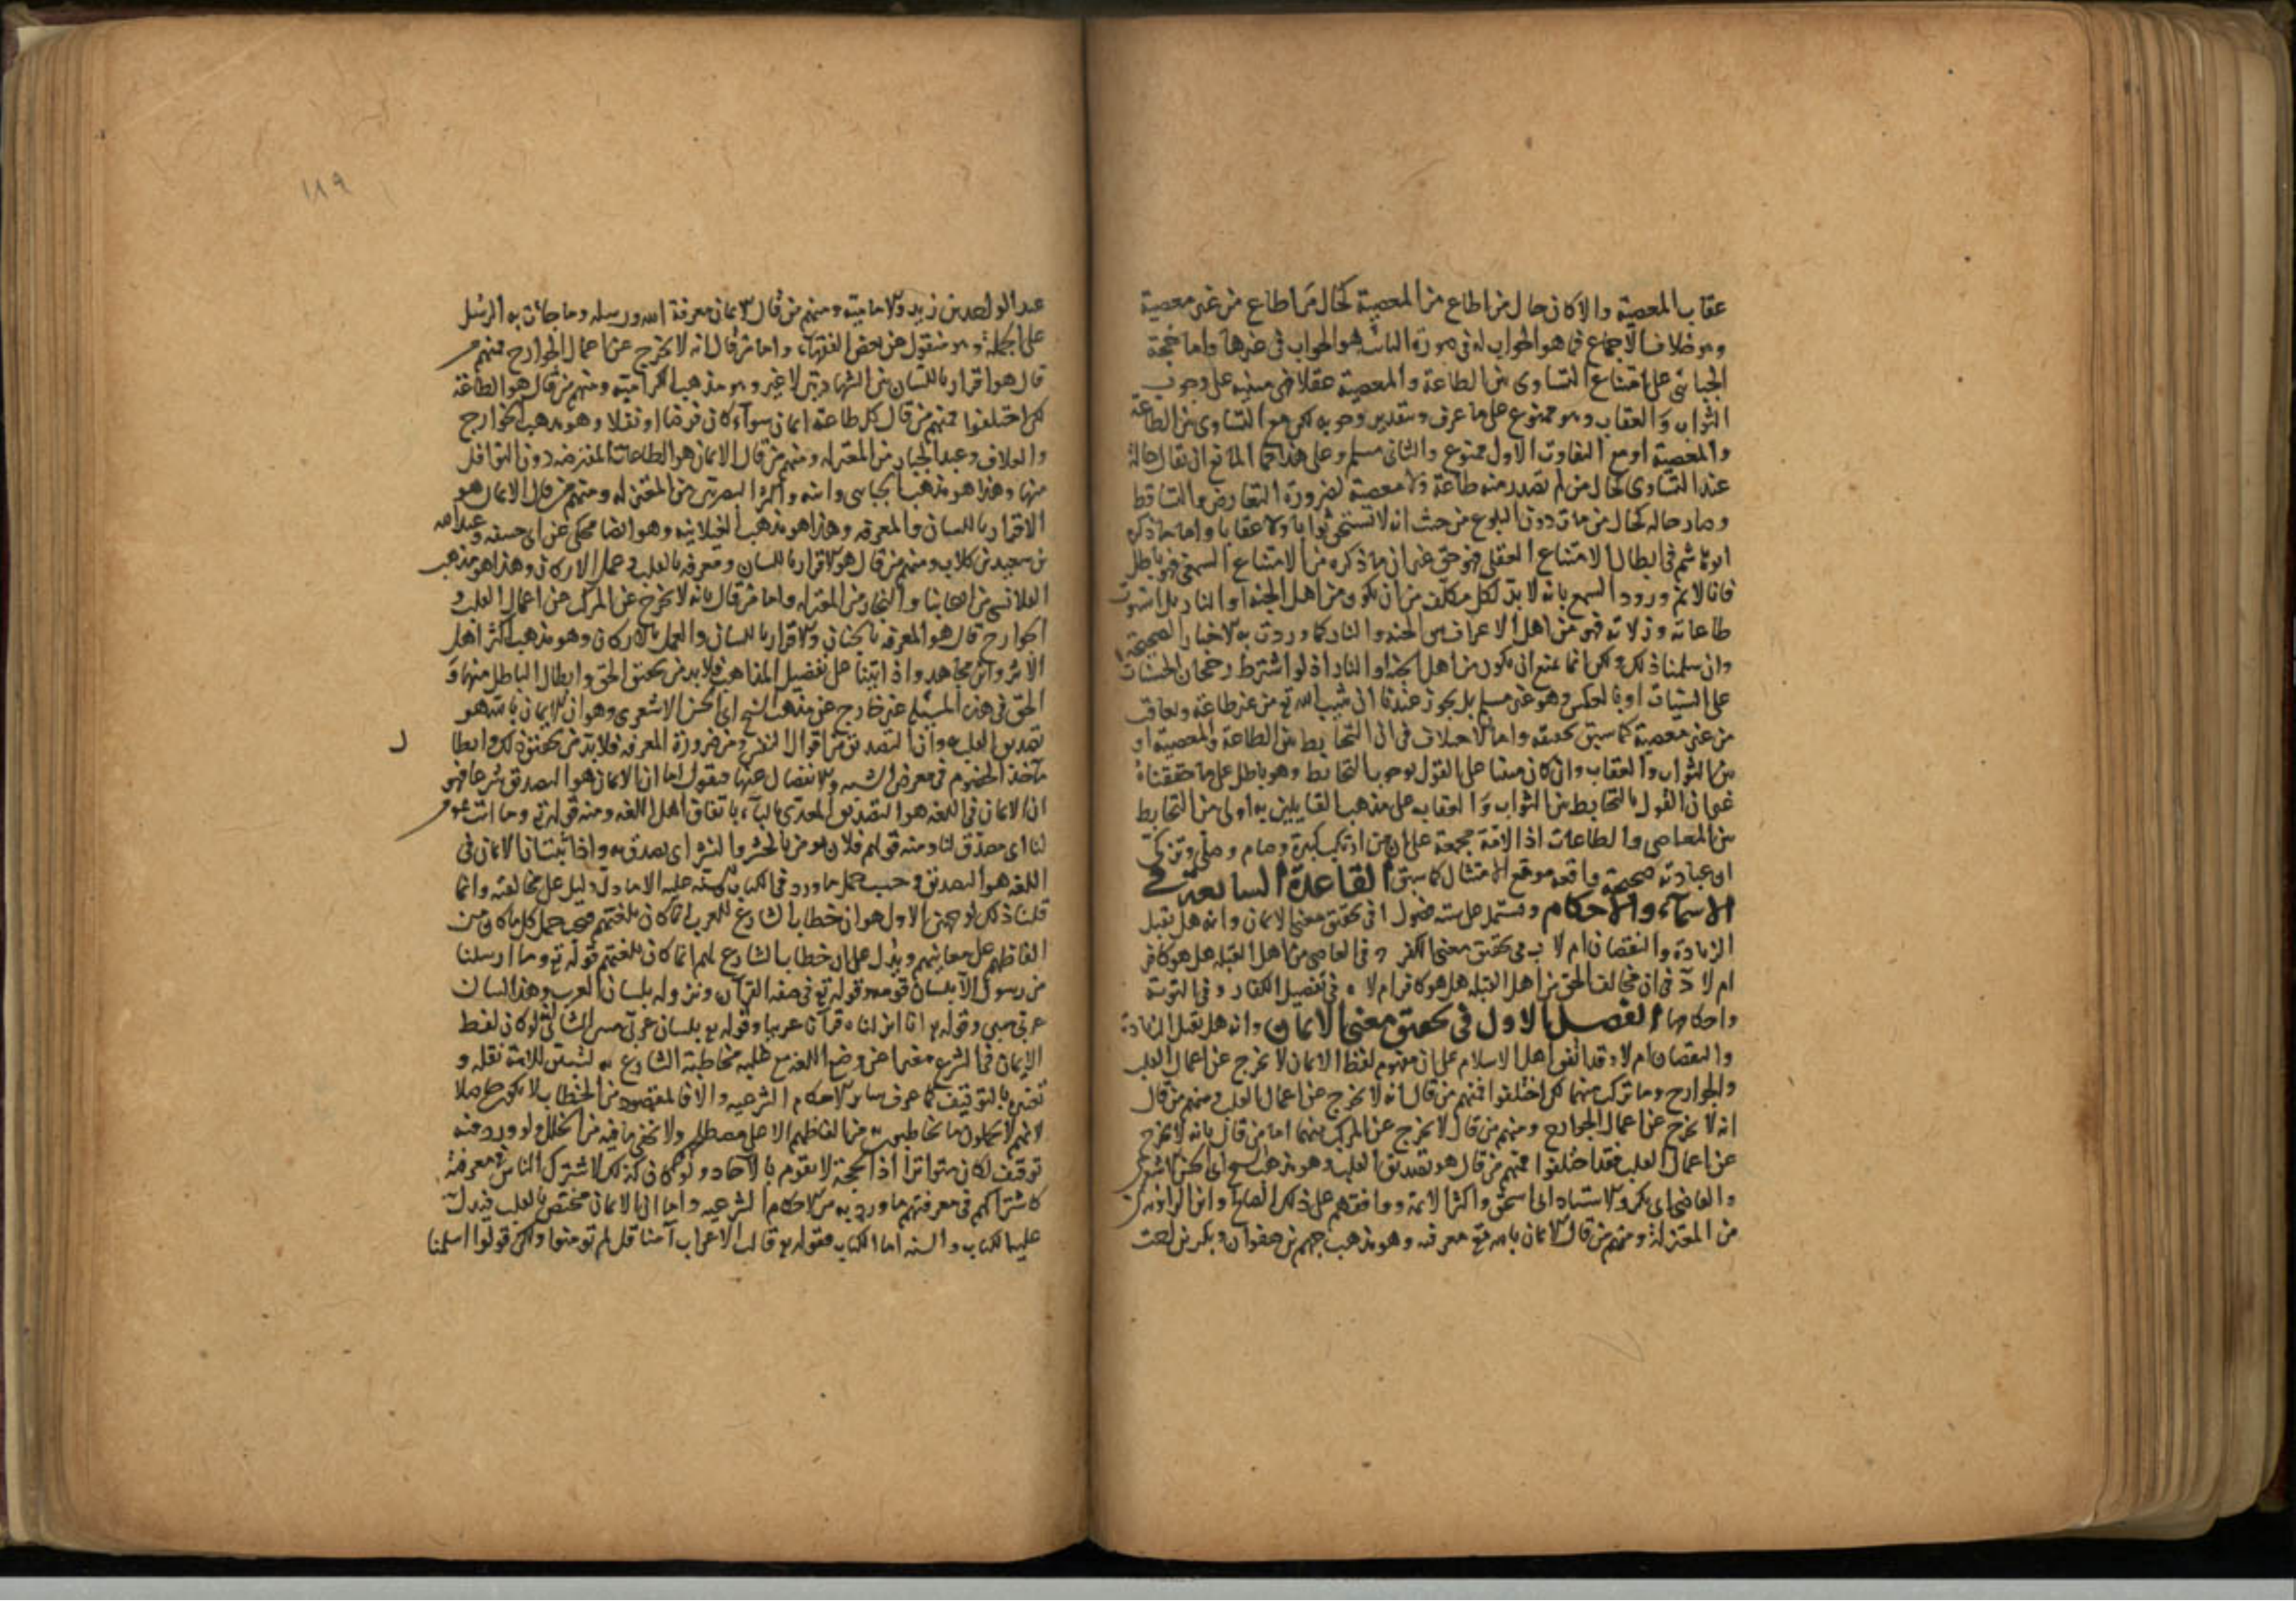 عقاب المعصية والا كان حال من اطاع من المعصية كحال من اطاع من غير معصية
وهو خلاف الاجماع فما هو الجواب له فى صورة الناس هو الجواب فى غيرها واما حجة
الجبائى على امتناع التساوى بين الطاعة والمعصية عقلا فهى مبنيه على وجوب
الثواب والعقاب وهو ممنوع على ما عرف وبتقدير وجوبه لكن مع التساوى بين الطاعة
والمعصية او مع التفاوت الاول ممنوع والثانى مسلم وعلى هذا فما المانع ان يقال حاله
عند التساوى كحال من لم تصدر منه طاعة ولا معصية لضرورة التعارض والتساقط
وصار حاله كحال من مات دون البلوغ من حيث انه لا يستحق ثوابا ولا عقابا واما ما ذكره
ابو هاشم فى ابطال الامتناع العقلى فهو حق غير ان ما ذكره من الامتناع السمعى فهو باطل
فانا لا نم ورود السمع بانه لا بد لكل مكلف من ان يكون من اهل الجنة او النار بل من استوت
طاعاته وزلاته فهو من اهل الاعراف بين الجنه والنار كما وردت به الاخبار الصحيحة
وان سلمنا ذلك ولكن انما يمتنع ان يكون من اهل الجنه او النار اذ لو اشترط رجحان الحسنات
على السيات او بالعكس وهو غير مسلم بل يجوز عندنا ان يثيب الله تع من غير طاعة ويعاقب
من غير معصية كما سبق تحقيقه واما الاختلاف فى ان التحابط بين الطاعة والمعصية او
بين الثواب والعقاب وان كان مبنيا على القول بوجوب التحابط وهو باطل على ما حققناه
غير ان القول بالتحابط بين الثواب والعقاب على مذهب القايلين به اولى من التحابط
بين المعاصى والطاعات اذ الامة مجمعة على ان من ارتكب كبيرة وصام وصلى وتزكى
ان عبادته صحيحة واقعه موقع الامتثال كما سبق القاعدة السابعة فى
الاسماء والاحكام وتشتمل على سته فصول ا فى تحقيق معنى الايمان وانه هل يقبل
الزيادة والنقصان ام لا ب فى تحقيق معنى الكفر ج فى العاصى من اهل القبله هل هو كافر
ام لا د فى ان مخالف الحق من اهل القبله هل هو كافر ام لا ه فى تفصيل الكفار و فى التوبة
واحكامها الفصل الاول فى تحقيق معنى الايمان وانه هل يقبل الزيادة
والنقصان ام لا وقد اتفق اهل الاسلام على ان مفهوم لفظ الايمان لا يخرج عن اعمال القلب
والجوارح وما تركب منهما لكن اختلفوا فمنهم من قال انه لا يخرج عن اعمال القلب ومنهم من قال
انه لا يخرج عن اعمال الجوارح ومنهم من قال لا يخرج عن المركب منهما اما من قال بانه لا يخرج
عن اعمال القلب فقد اختلفوا فمنهم من قال هو تصديق القلب وهو مذهب الشيخ ابى الحسن الاشعرى
والقاضى ابى بكر والاستاد ابى اسحق واكثر الائمة ووافقهم على ذلك الصالحى وابن الراوندى
من المعتزلة ومنهم من قال الايمان بالله تع معرفته وهو مذهب جهم بن صفوان وبكر بن اخت
١٨٩
عبد الواحد بن زيد والامامية ومنهم من قال الايمان معرفة الله ورسله وما جات به الرسل
على الجملة وهو منقول عن بعض الفقهاء واما من قال انه لا يخرج عن اعمال الجوارح فمنهم من
قال هو اقرار باللسان بين الشهادتين لا غير وهو مذهب الكرامية ومنهم من قال هو الطاعة
لكن اختلفوا فمنهم من قال كل طاعة ايمان سواء كان فرضا او نفلا وهو مذهب الخوارج
والعلاف وعبد الجبار من المعتزله ومنهم من قال الايمان هو الطاعات المفترضه دون النوافل
منها وهذا هو مذهب الجباى وابنه واكثر البصريين من المعتزله ومنهم من قال الايمان هو
الاقرار باللسان والمعرفه وهذا هو مذهب الغيلانيه وهو ايضا محكى عن ابى حنيفه وعبد الله
بن سعيد بن كلاب ومنهم من قال هو الاقرار باللسان ومعرفه بالقلب وعمل الاركان وهذا هو مذهب
القلانسى من اصحابنا والنجار من المعتزله واما من قال بانه لا يخرج عن المركب من اعمال القلب و
الجوارح قال هو المعرفه بالجنان والاقرار باللسان والعمل بالاركان وهو مذهب اكثر اهل
الاثر وابن مجاهد واذ اتينا على تفصيل المذاهب فلا بد من تحقيق الحق وابطال الباطل منها و
الحق فى هذه المسئله غير خارج عن مذهب الشيخ ابى الحسن الاشعرى وهو ان الايمان بالله هو
تصديق القلب به وان التصديق من اقوال النفس ومن ضرورة المعرفه فلا بد من تحقيق ذلك وابطا
ل
مآخذ الخصوم فى معرض الشبه والانفصال عنها فنقول اما ان الايمان هو التصديق شرعا فهو
ان الايمان فى اللغه هو التصديق المعدى بالباء باتفاق اهل اللغه ومنه قوله تع وما انت بمومن
لنا اى مصدق لنا ومنه قولهم فلان يومن بالحشر والنشر اى يصدق به واذا ثبت ان الايمان فى
اللغه هو التصديق وجب حمل ما ورد فى الكتاب والسنه عليه الا ما دل دليل على مخالفته وانما
قلنا ذلك لوجهين الاول هو ان خطاب الشارع للعرب انما كان بلغتهم فيجب حمل كل ما كان من
الفاظهم على معانيهم ويدل على ان خطاب الشارع لهم انما كان بلغتهم قوله تع وما ارسلنا
من رسول الا بلسان قومه وقوله تع فى صفه القرآن ونزوله بلسان العرب وهذا لسان
عربى مبين وقوله تع انا انزلناه قرآنا عربيا وقوله تع بلسان عربى مبين الثانى لو كان لفظ
الايمان فى الشرع مغيرا عن وضع اللغه مع غلبه مخاطبة الشارع به لتبين للامة نقله و
تغييره بالتوقيف كما عرف ساير الاحكام الشرعيه والا فالمقصود من الخطاب لا يكون حاصلا
لانهم لا يحملون ما يخاطبون به من الفاظهم الا على مصطلحهم ولا يخفى ما فيه من الخلل ولو ورد فيه
توقيف لكان متواترا اذ الحجة لا تقوم بالآحاد ولو كان كذلك لاشترك الناس فى معرفته
كاشتراكهم فى معرفتهم ما ورد به من الاحكام الشرعيه واما ان الايمان مختص بالقلب فيدل
عليه الكتاب والسنه اما الكتاب فقوله تع قالت الاعراب آمنا قل لم تومنوا ولكن قولوا اسلمنا